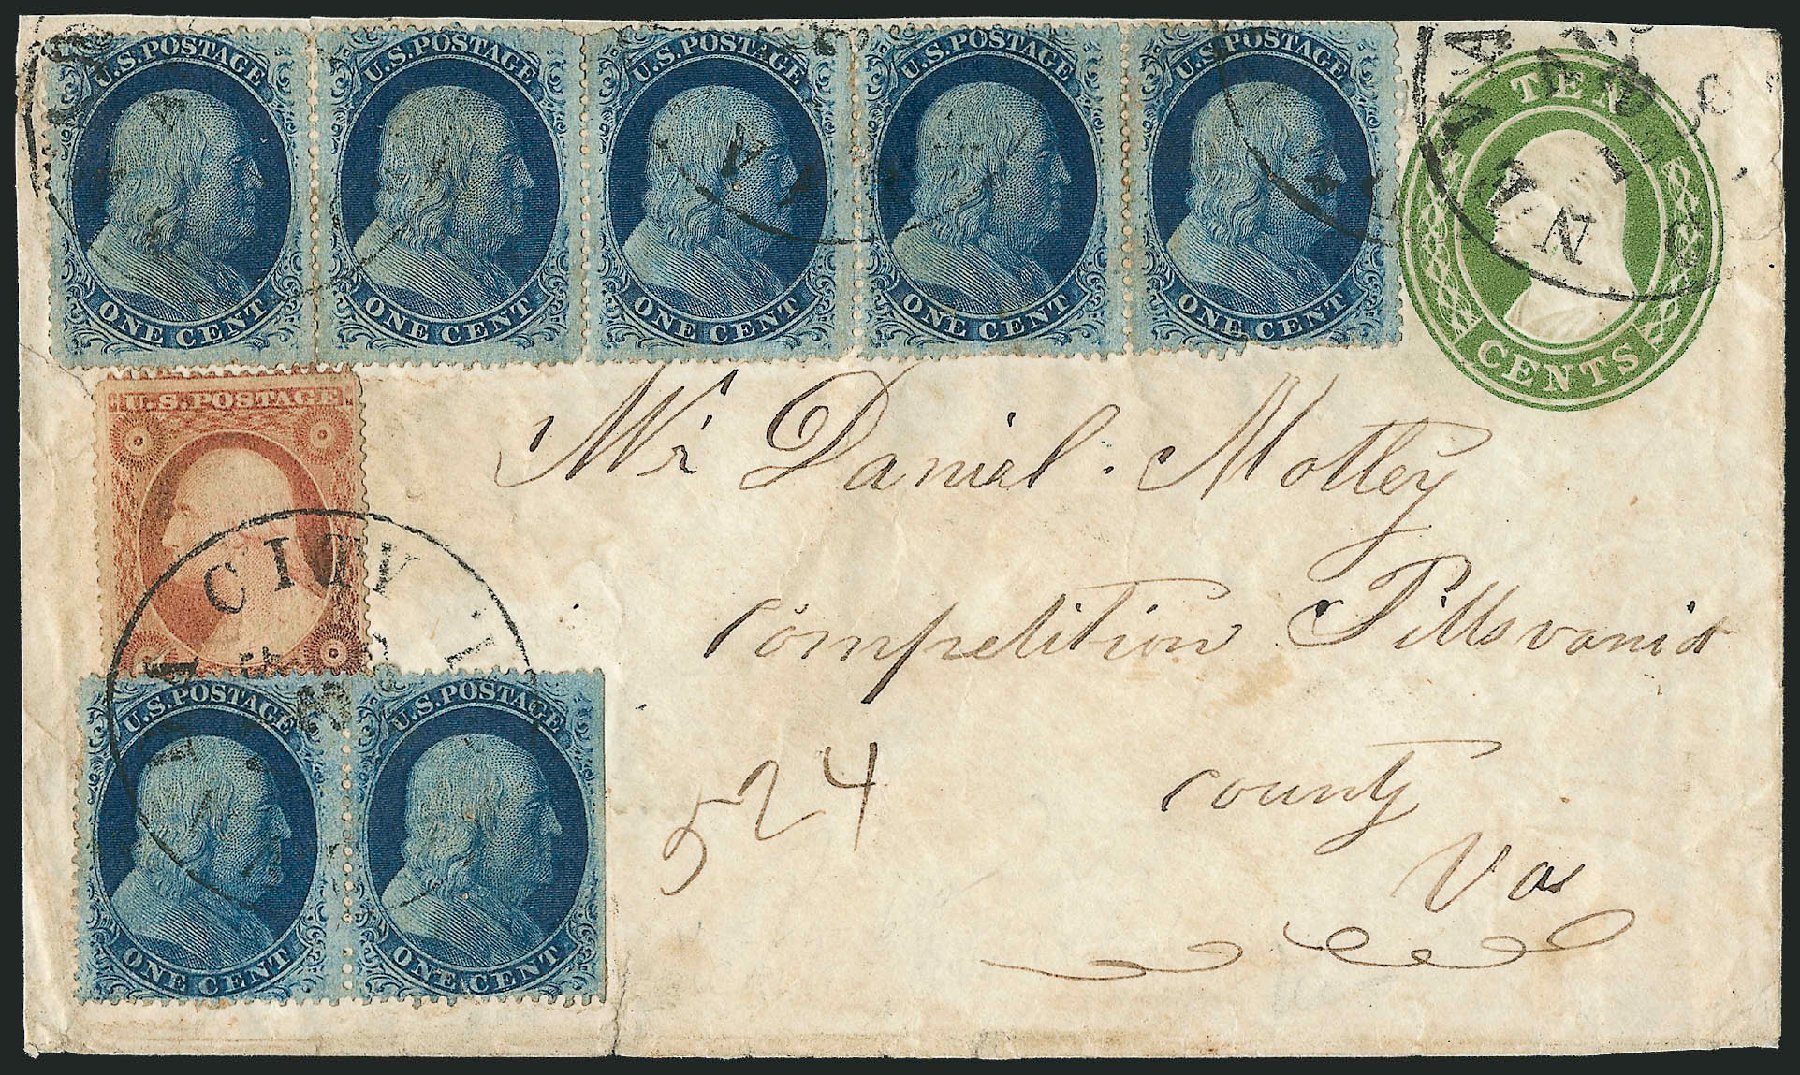 U.S. POSTAGE U.S. POSTAGE U.S. POSTAGE U.S. POSTAGE U.S. POSTAGE TEN
ONE CENT ONE CENT ONE CENT ONE CENT ONE CENT CENTS
U.S. POSTAGE
Mr Daniel. Motley
CITY
Competition Pittsvania
U.S. POSTAGE U.S. POSTAGE
524
County
Va
ONE CENT ONE CENT